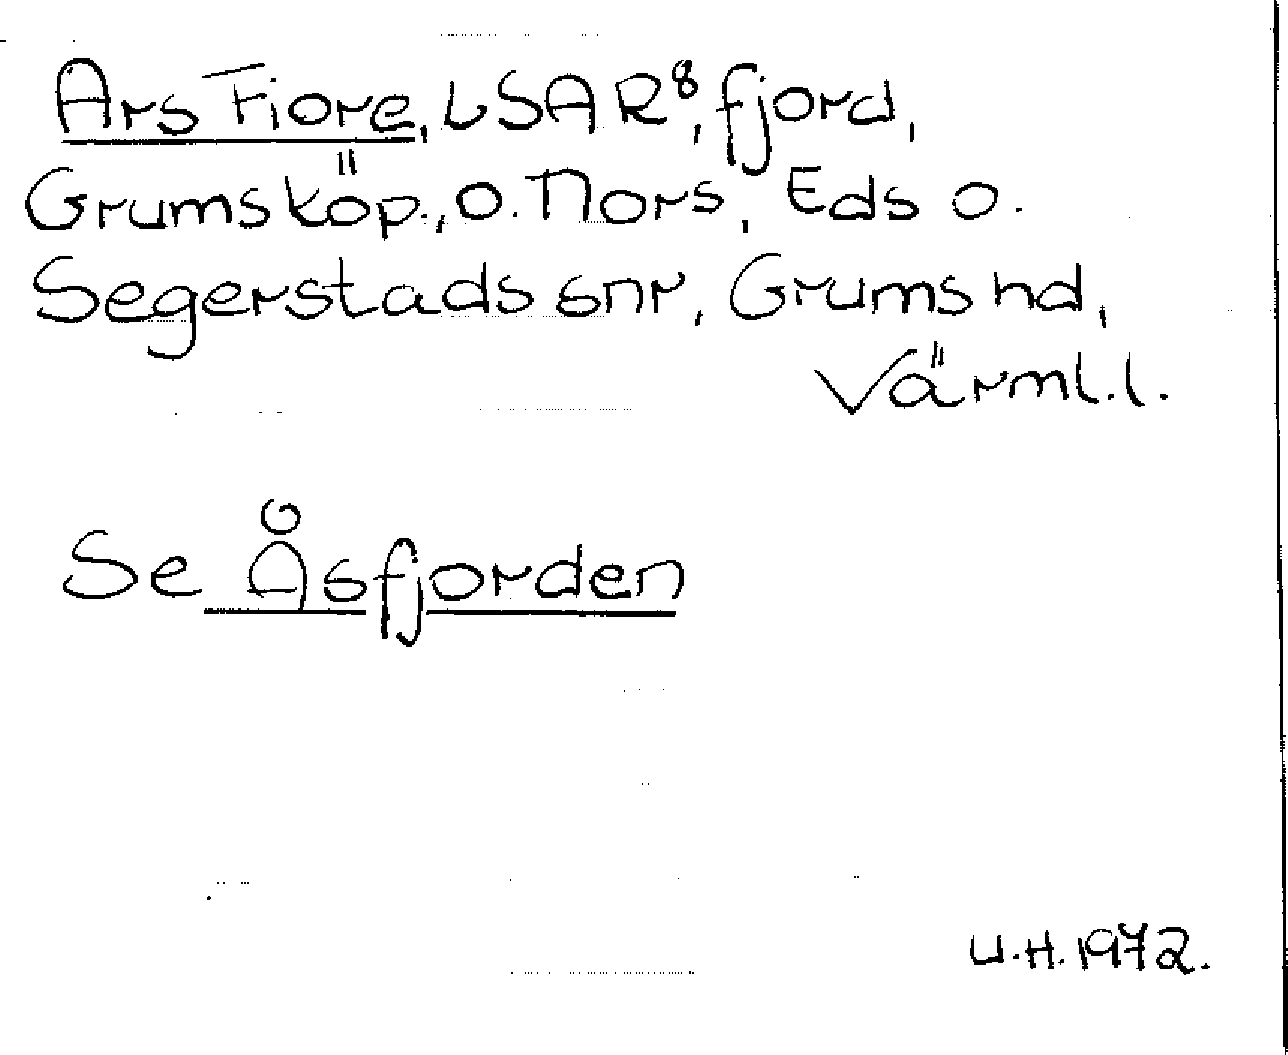 Ars Fiore, LSAR⁸, fjord,
Grums köp., o. Nors, Eds o.
Segerstads snr, Grums hd,
Värml. l.
Se Åsfjorden
U.H. 1972.